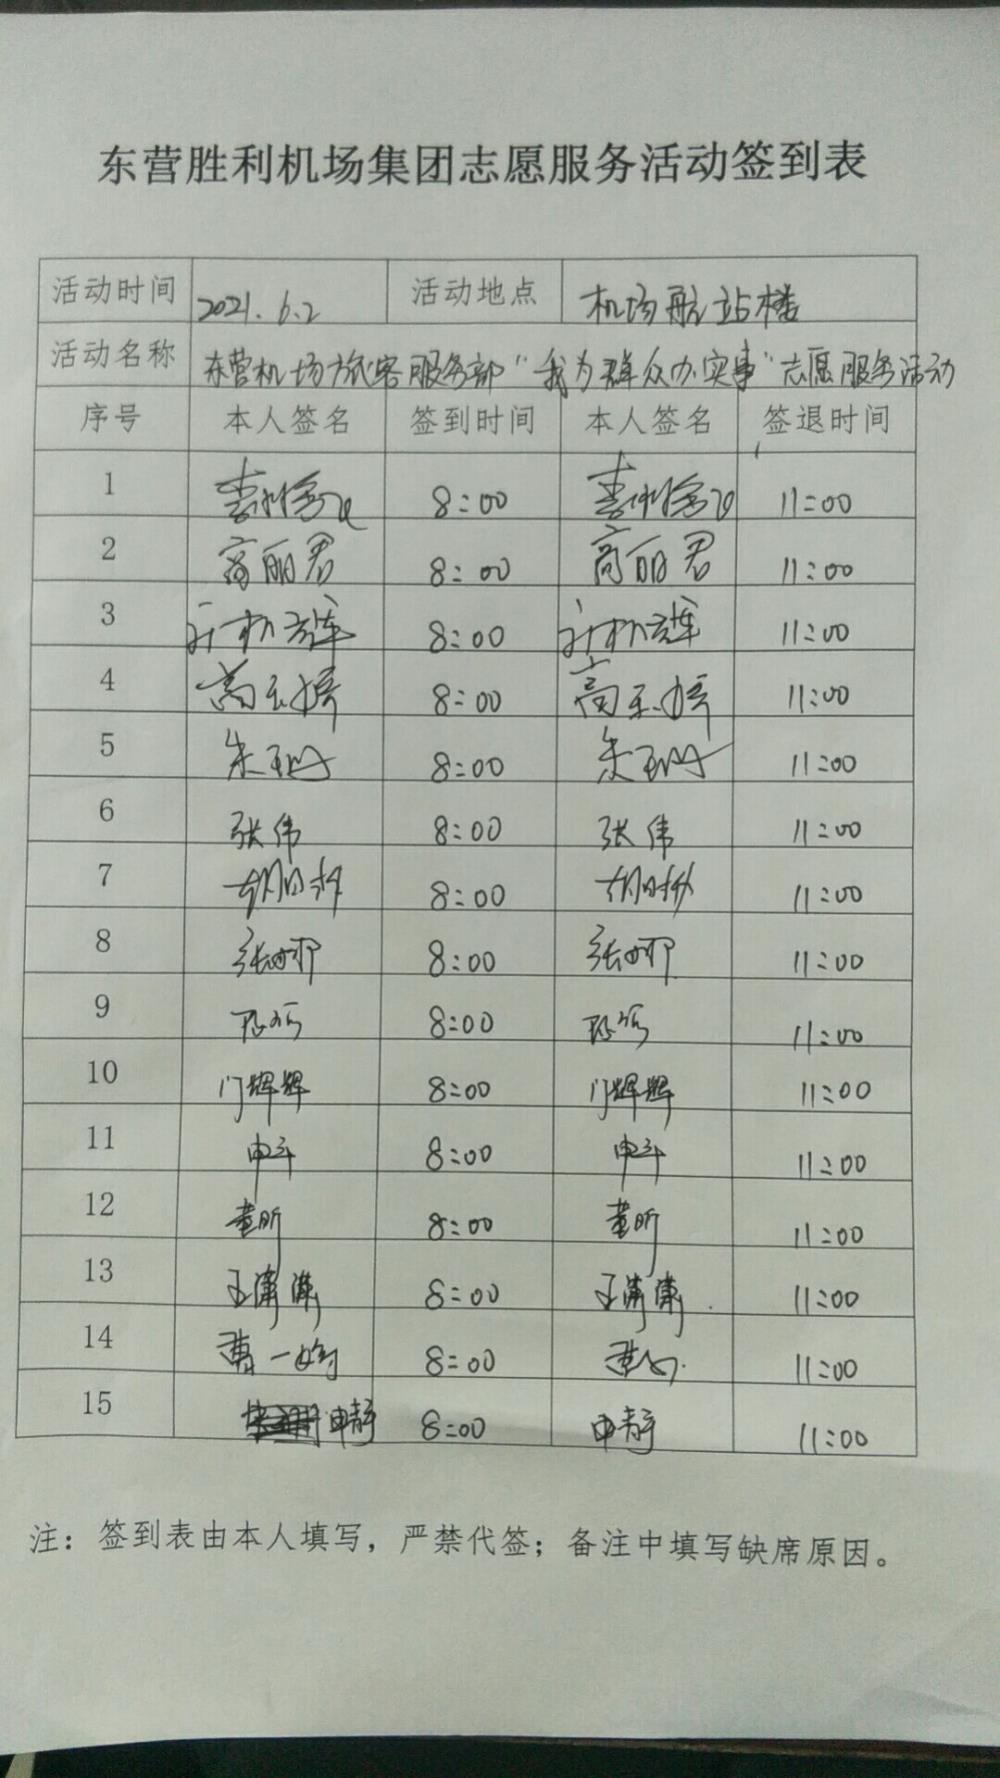 东营胜利机场集团志愿服务活动签到表
活动时间 2021.6.2 活动地点 机场航站楼
活动名称 东营机场旅客服务部“我为群众办实事”志愿服务活动
序号 本人签名 签到时间 本人签名 签退时间
1 8:00 11:00
2 高丽君 8:00 高丽君 11:00
3 8:00 11:00
4 高玉婷 8:00 高玉婷 11:00
5 朱玉 8:00 朱玉 11:00
6 张伟 8:00 张伟 11:00
7 8:00 11:00
8 张 8:00 张 11:00
9 8:00 11:00
10 门辉辉 8:00 门辉辉 11:00
11 8:00 11:00
12 董昕 8:00 董昕 11:00
13 王潇潇 8:00 王潇潇 11:00
14 曹一 8:00 11:00
15 申静 8:00 申静 11:00
注：签到表由本人填写，严禁代签；备注中填写缺席原因。